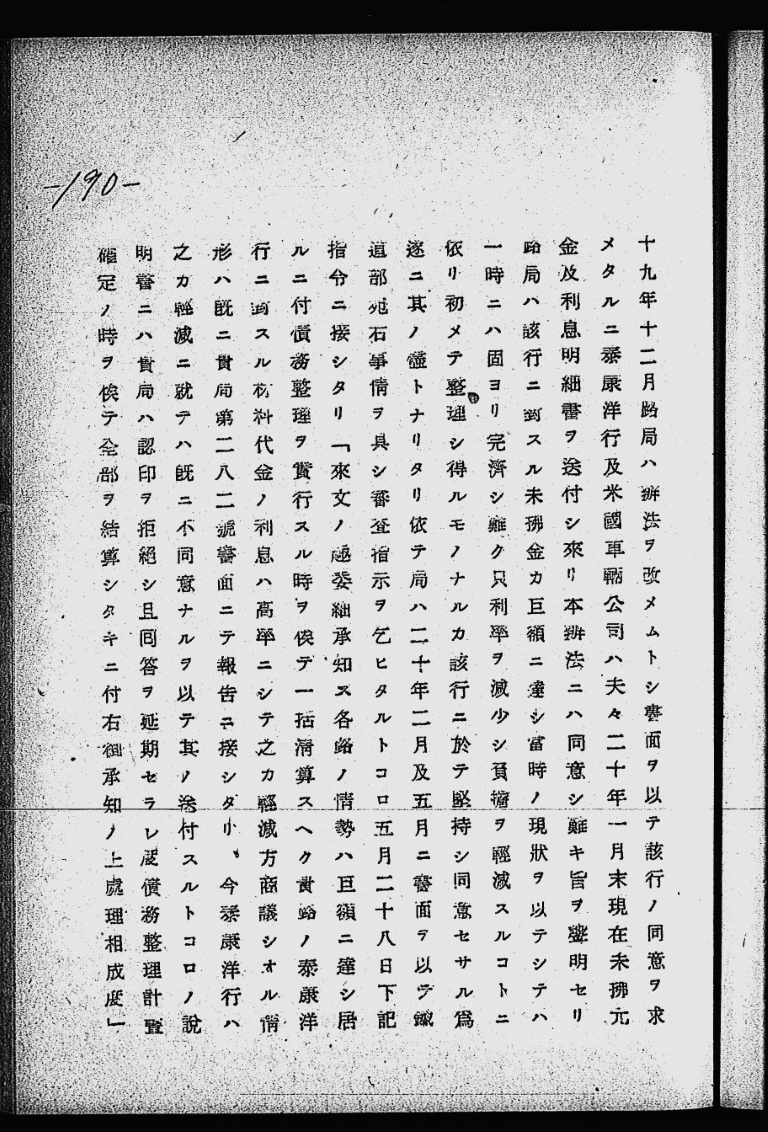 -190-
十九年十二月路局ハ辦法ヲ改メムトシ書面ヲ以テ該行ノ同意ヲ求
メタルニ泰康洋行及米國車輛公司ハ夫々二十年一月末現在未拂元
金及利息明細書ヲ送付シ來リ本辦法ニハ同意シ難キ旨ヲ聲明セリ
路局ハ該行ニ對スル未拂金カ巨額ニ達シ當時ノ現狀ヲ以テシテハ
一時ニハ固ヨリ完濟シ難ク只利率ヲ減少シ負擔ヲ輕減スルコトニ
依リ初メテ整理シ得ルモノナルカ該行ニ於テ堅持シ同意セサル爲
遂ニ其ノ儘トナリタリ依テ局ハ二十年二月及五月ニ書面ヲ以テ鐵
道部宛右事情ヲ具シ審査指示ヲ乞ヒタルトコロ五月二十八日下記
指令ニ接シタリ「來文ノ趣委細承知ス各路ノ情勢ハ巨額ニ達シ居
ルニ付債務整理ヲ實行スル時ヲ俟テ一括清算スヘク貴路ノ泰康洋
行ニ對スル材料代金ノ利息ハ高率ニシテ之カ輕減方商議シオル情
形ハ既ニ貴局第二八二號書面ニテ報告ニ接シタリ、今泰康洋行ハ
之カ輕減ニ就テハ既ニ不同意ナルヲ以テ其ノ送付スルトコロノ說
明書ニハ貴局ハ認印ヲ拒絕シ且回答ヲ延期セラレ度債務整理計畫
確定ノ時ヲ俟テ全部ヲ結算シタキニ付右御承知ノ上處理相成度」